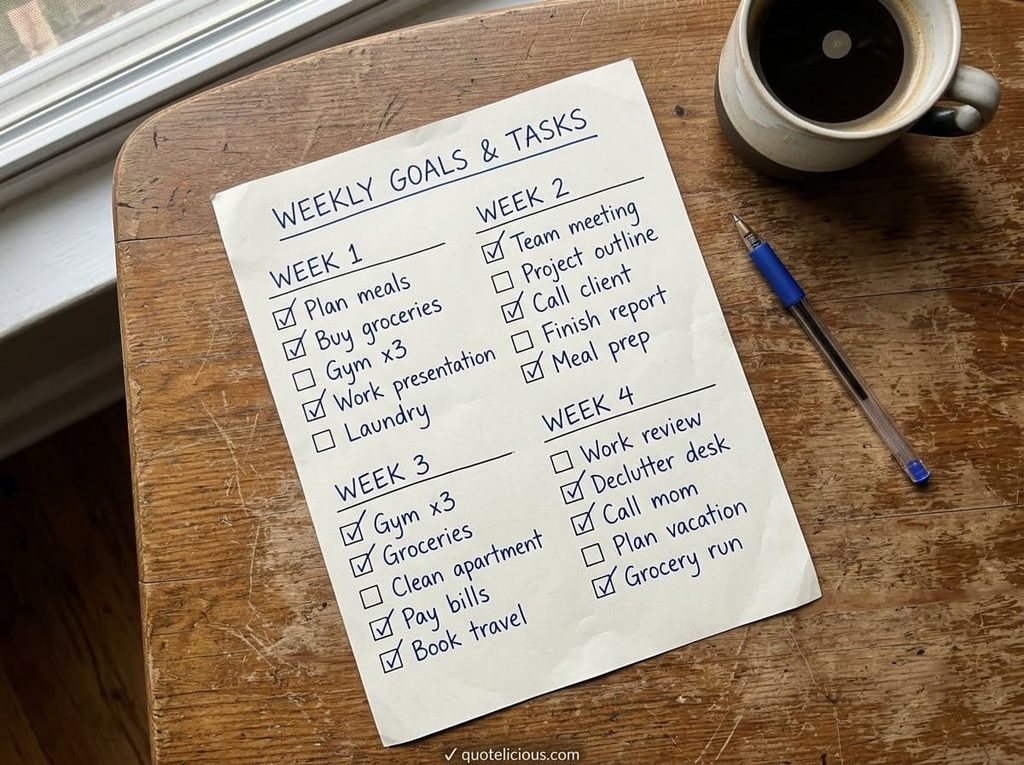 WEEKLY GOALS & TASKS
WEEK 1
☑ Plan meals
☑ Buy groceries
☐ Gym x3
☑ Work presentation
☐ Laundry
WEEK 2
☑ Team meeting
☐ Project outline
☑ Call client
☐ Finish report
☑ Meal prep
WEEK 3
☑ Gym x3
☑ Groceries
☐ Clean apartment
☑ Pay bills
☑ Book travel
WEEK 4
☐ Work review
☑ Declutter desk
☑ Call mom
☐ Plan vacation
☑ Grocery run
✓ quotelicious.com